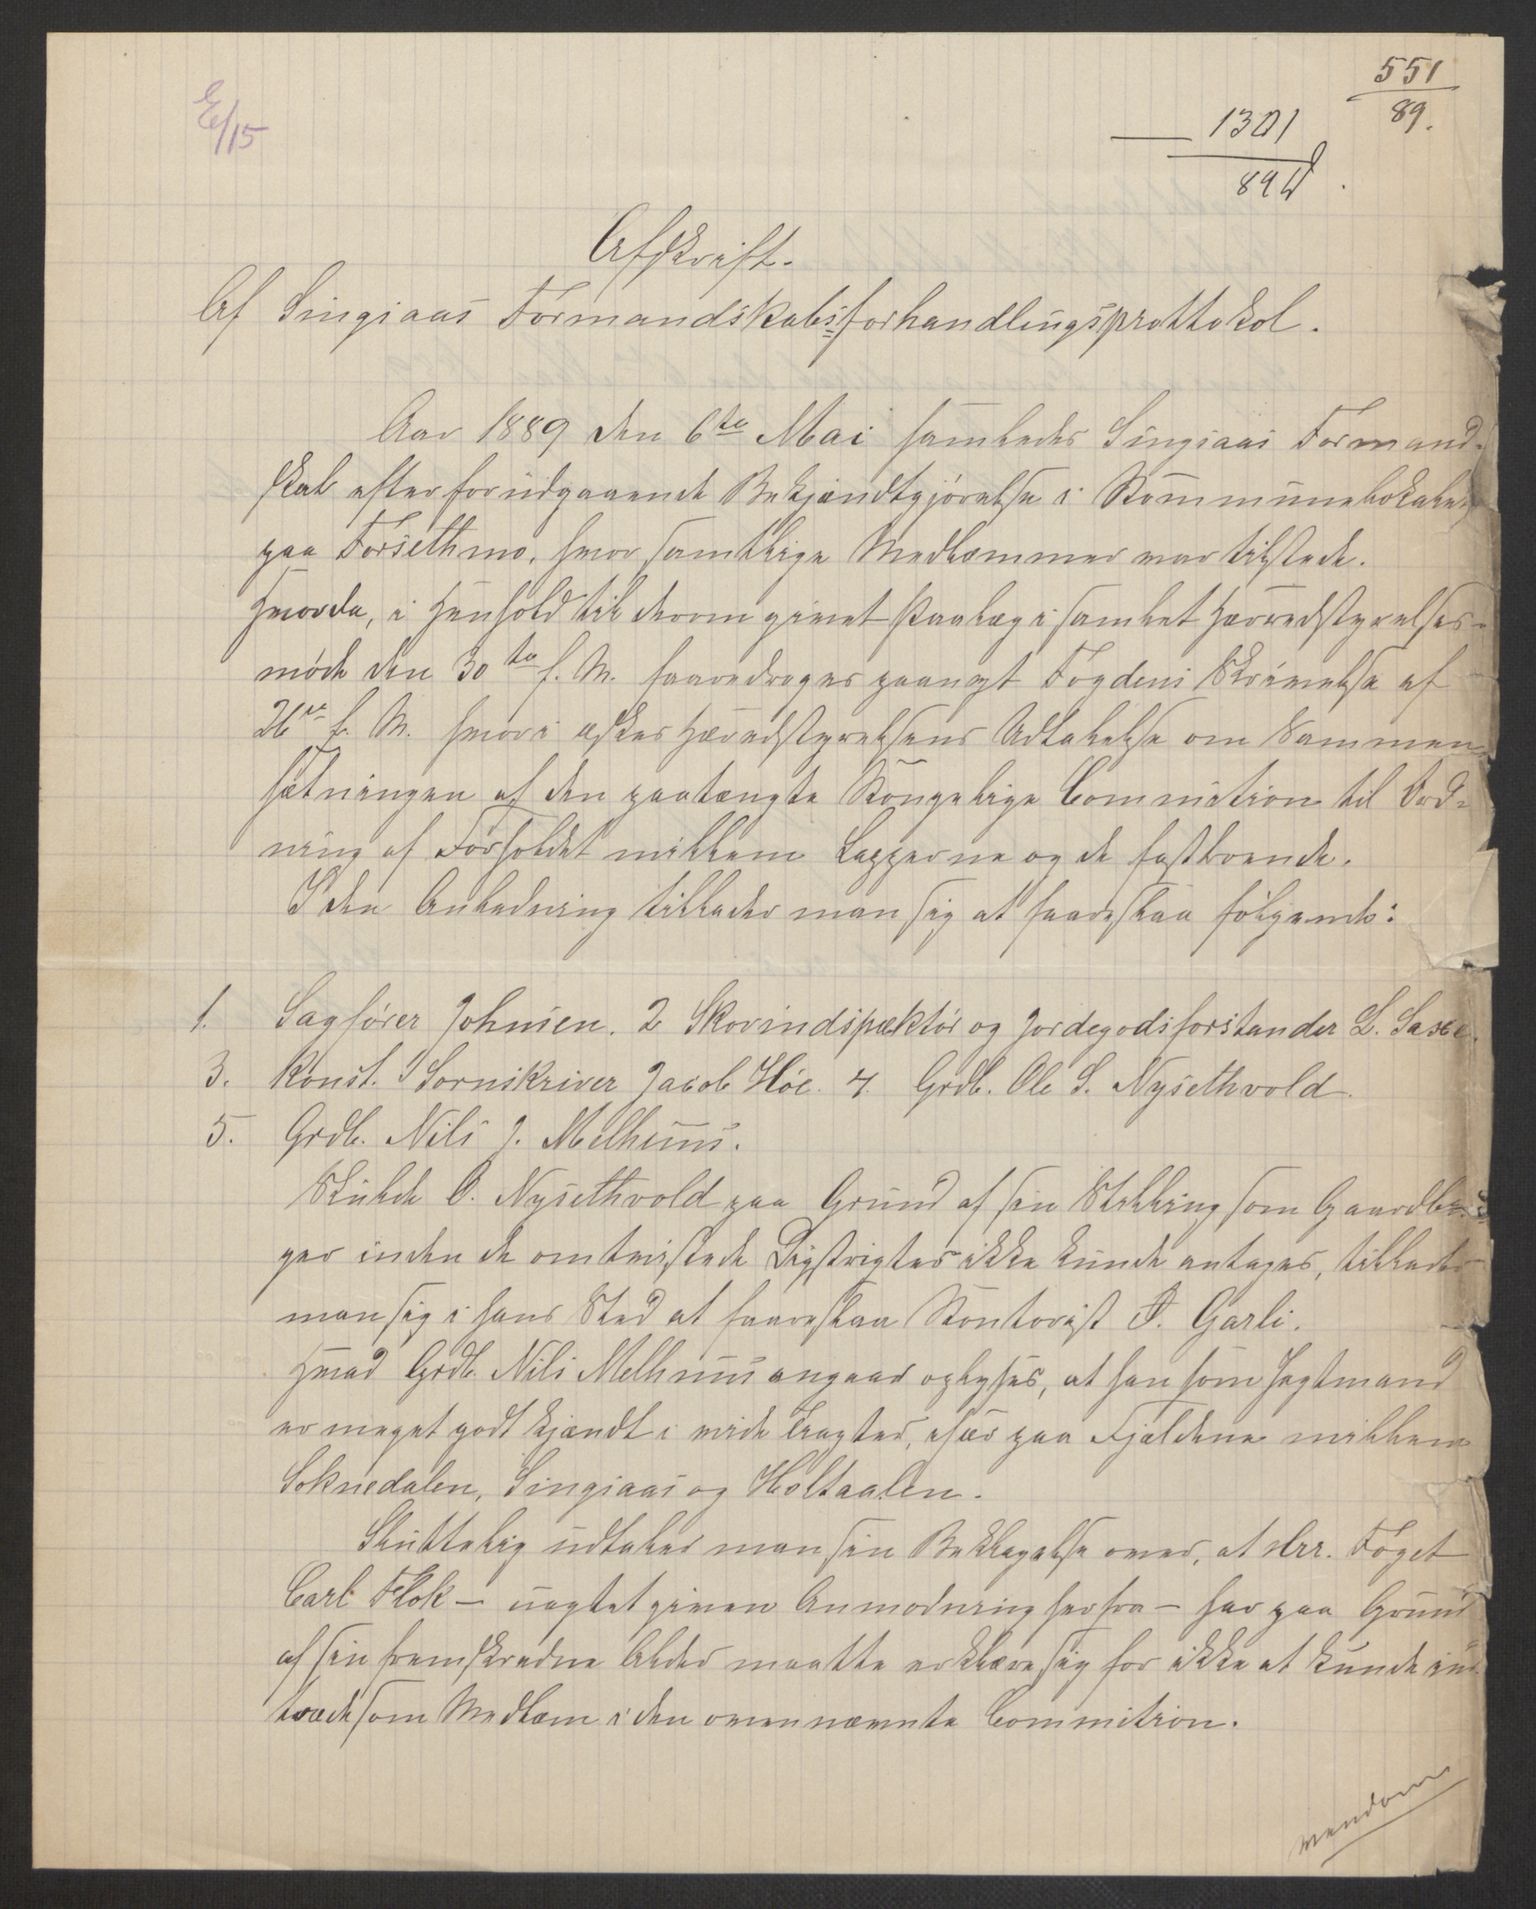 551
89.
E/15
1301
89
Afskrift.
Af Singsaas Formandskabsforhandlingsprottokol.
Aar 1889 den 6te Mai samledes Singsaas Formand-
skab efter forudgaaende Bekjendtgjørelse i Kommunelokalet
paa Forsethmo, hvor samtlige Medlemmer var tilstede.
Hvorda, i Henhold til derom givet Paalæg i samlet Herredstyrelses-
møde den 30te f. M. foredroges paanyt Fogdens Skrivelse af
26de f. M. hvori æskes Herredstyrelsens Udtalelse om Sammen-
sætningen af den paatænkte Kongelige Commition til Ord-
ning af Forholdet mellem Lapperne og de fastboende.
I den Anledning tillader man sig at foreslaa følgende:
1. Sagfører Johnsen. 2 Skovindspektør og Jordegodsforstander L. Saxe.
3. Konst. Sornskriver Jacob Høe. 4. Grdb. Ole S. Nysethvold.
5. Grdb. Nils J. Melhuus.
Skulde O. Nysethvold paa Grund af sin Stilling som Gaardbru-
ger inden de omtvistede Distrigter ikke kunde antages, tillader
man sig i hans Sted at foreslaa Kontorist P. Garli.
Hvad Grdb. Nils Melhuus angaar oplyses, at han som Jagtmand
er meget godt kjendt i vide Tragter, især paa Fjeldene mellem
Soknedalen, Singsaas og Holtaalen.
Sluttelig udtaler man sin Beklagelse over, at Hrr. Foget
Carl Flok – uagtet given Anmodning herfra – har paa Grund
af sin fremskredne Alder maatte erklære sig for ikke at kunde ind-
træde som Medlem i den ovennævnte Commition.
vendom